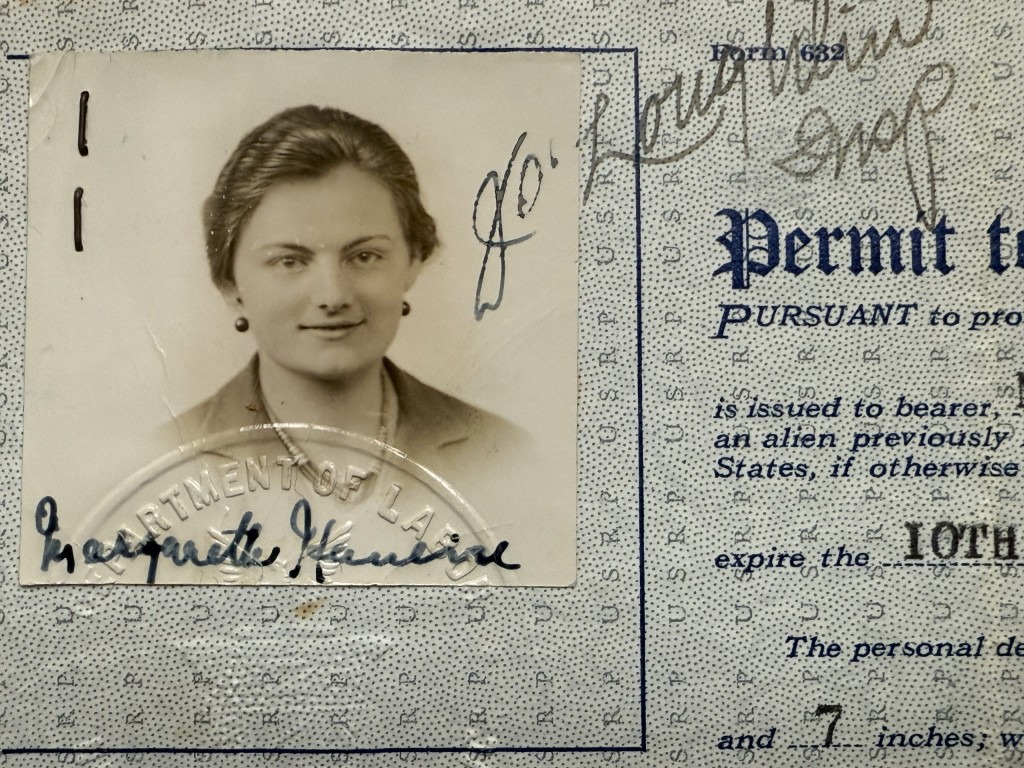 Form 632
Loughlin
Insp.
Permit to
PURSUANT to pro
is issued to bearer,
an alien previously
States, if otherwise
expire the 10TH
The personal de
and 7 inches; w
DEPARTMENT OF LABOR
Margarethe